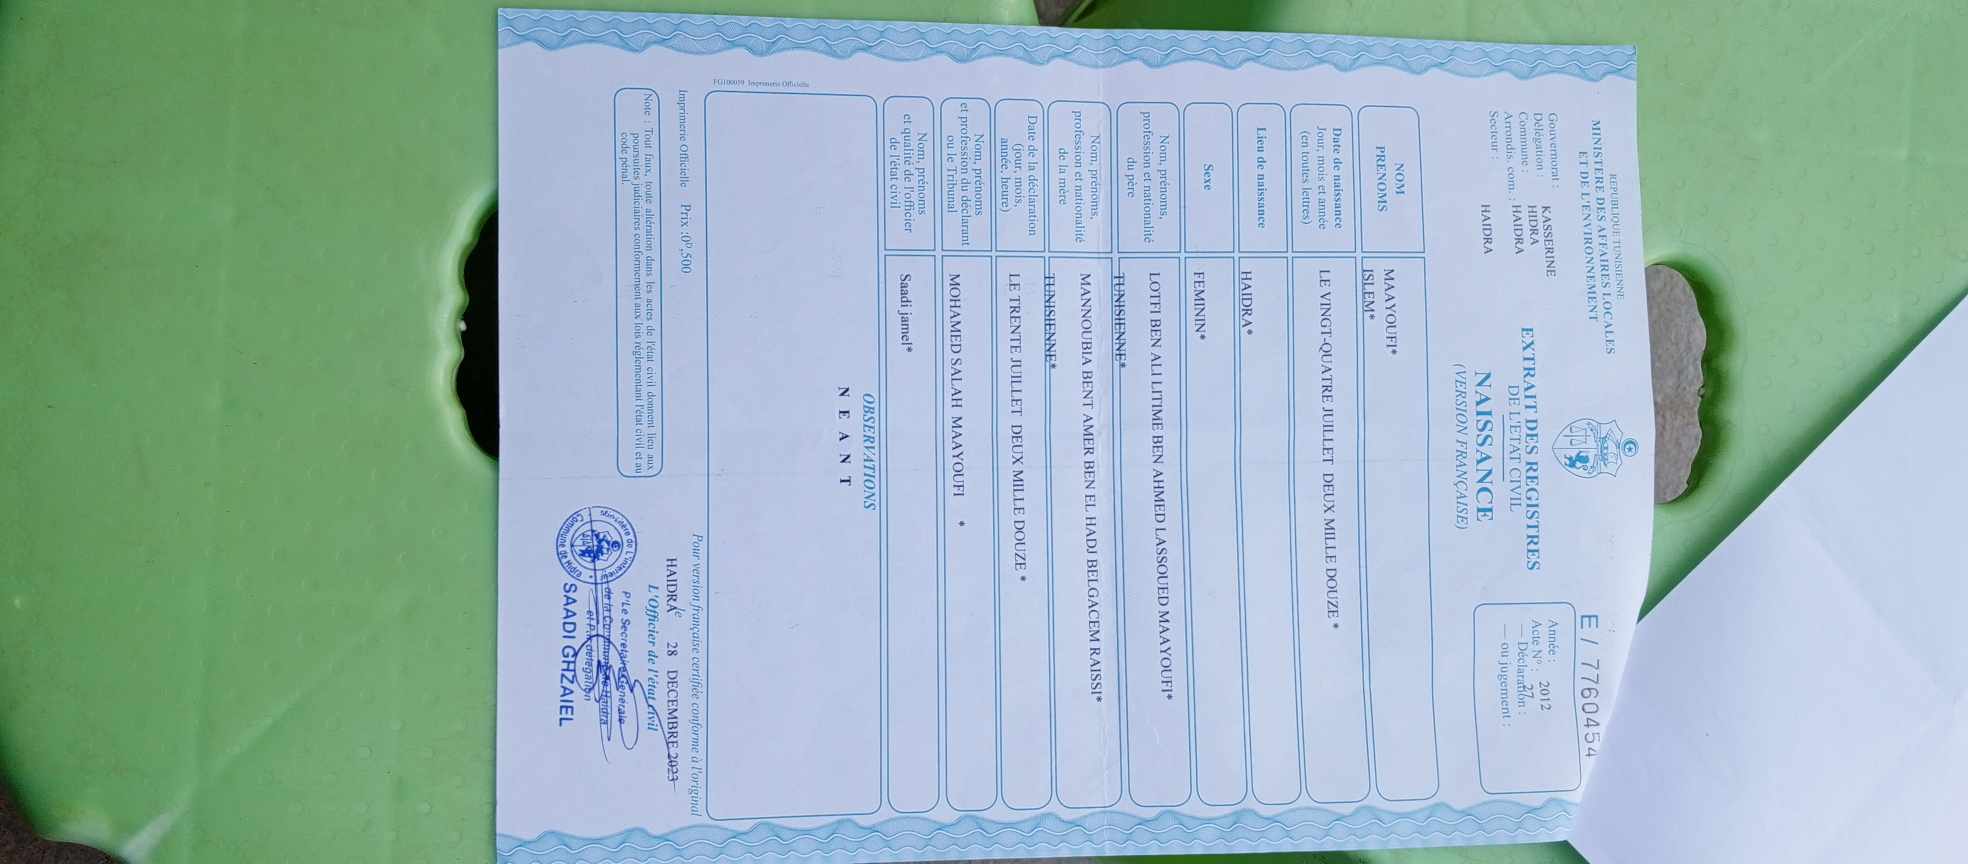 REPUBLIQUE TUNISIENNE
MINISTERE DES AFFAIRES LOCALES
ET DE L'ENVIRONNEMENT
E / 7760454
Gouvernorat : KASSERINE
Délégation : HIDRA
Commune : HAIDRA
Arrondis. com. :
Secteur : HAIDRA
EXTRAIT DES REGISTRES
DE L'ETAT CIVIL
NAISSANCE
(VERSION FRANÇAISE)
Année : 2012
Acte N° : 27
— Déclaration :
— ou jugement :
NOM MAAYOUFI*
PRENOMS ISLEM*
Date de naissance
Jour, mois et année LE VINGT-QUATRE JUILLET DEUX MILLE DOUZE *
(en toutes lettres)
Lieu de naissance HAIDRA*
Sexe FEMININ*
Nom, prénoms, LOTFI BEN ALI LITIME BEN AHMED LASSOUED MAAYOUFI*
profession et nationalité
du père TUNISIENNE*
Nom, prénoms, MANNOUBIA BENT AMER BEN EL HADJ BELGACEM RAISSI*
profession et nationalité
de la mère TUNISIENNE*
Date de la déclaration LE TRENTE JUILLET DEUX MILLE DOUZE *
(jour, mois,
année, heure)
Nom, prénoms MOHAMED SALAH MAAYOUFI *
et profession du déclarant
ou le Tribunal
Nom, prénoms Saadi jamel*
et qualité de l'officier
de l'état civil
OBSERVATIONS
N E A N T
FG100059 Imprimerie Officielle
Imprimerie Officielle Prix :0ᴰ,500
Note : Tout faux, toute altération dans les actes de l'état civil donnent lieu aux
poursuites judiciaires conformement aux lois réglementant l'état civil et au
code pénal.
Pour version française certifiée conforme à l'original
HAIDRA le 28 DECEMBRE 2023
L'Officier de l'état civil
P/Le Secretaire Generale
de la Commune de Haidra
et P.. délégation
SAADI GHZAIEL
Ministère de L'interieur
Commune de Hidra